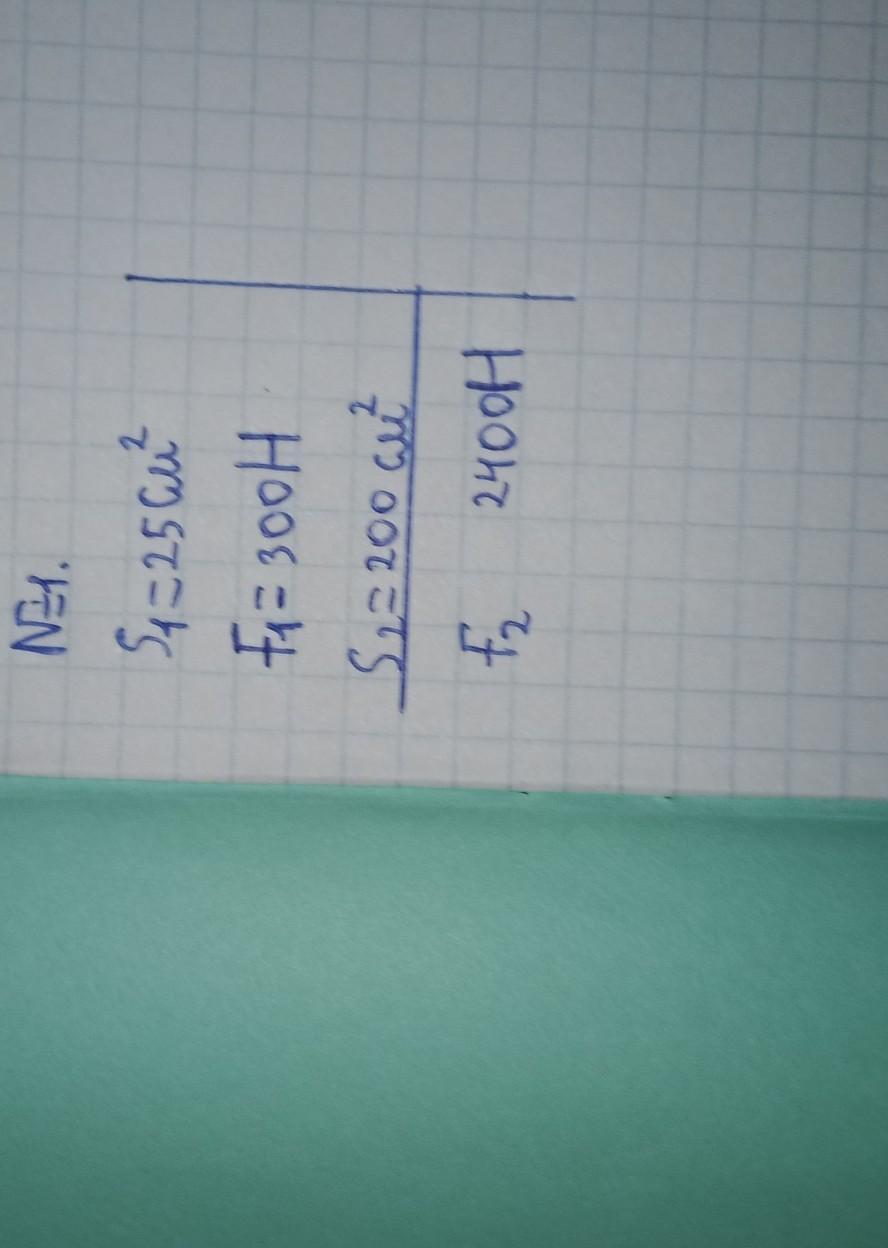 №1.
S₁=25 см²
F₁=300Н
S₂=200 см²
F₂ 2400Н